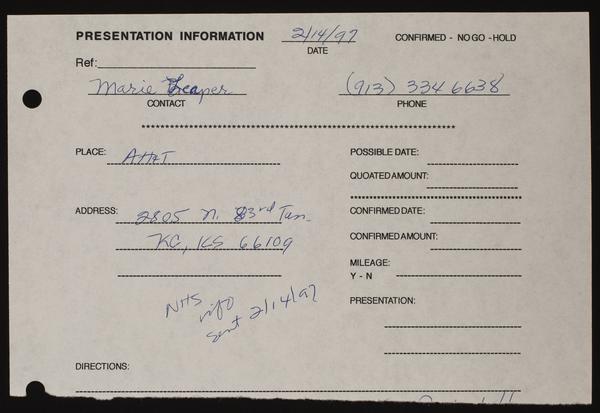 PRESENTATION INFORMATION 2/14/97 CONFIRMED - NO GO - HOLD
DATE
Ref:
Marie Treaper (913) 334 6638
CONTACT PHONE
PLACE: POSSIBLE DATE:
QUOATED AMOUNT:
ADDRESS: 2805 N. 83rd Terr CONFIRMED DATE:
KC, KS 66109 CONFIRMED AMOUNT:
MILEAGE:
Y - N
NHS PRESENTATION:
info
sent 2/14/97
DIRECTIONS: